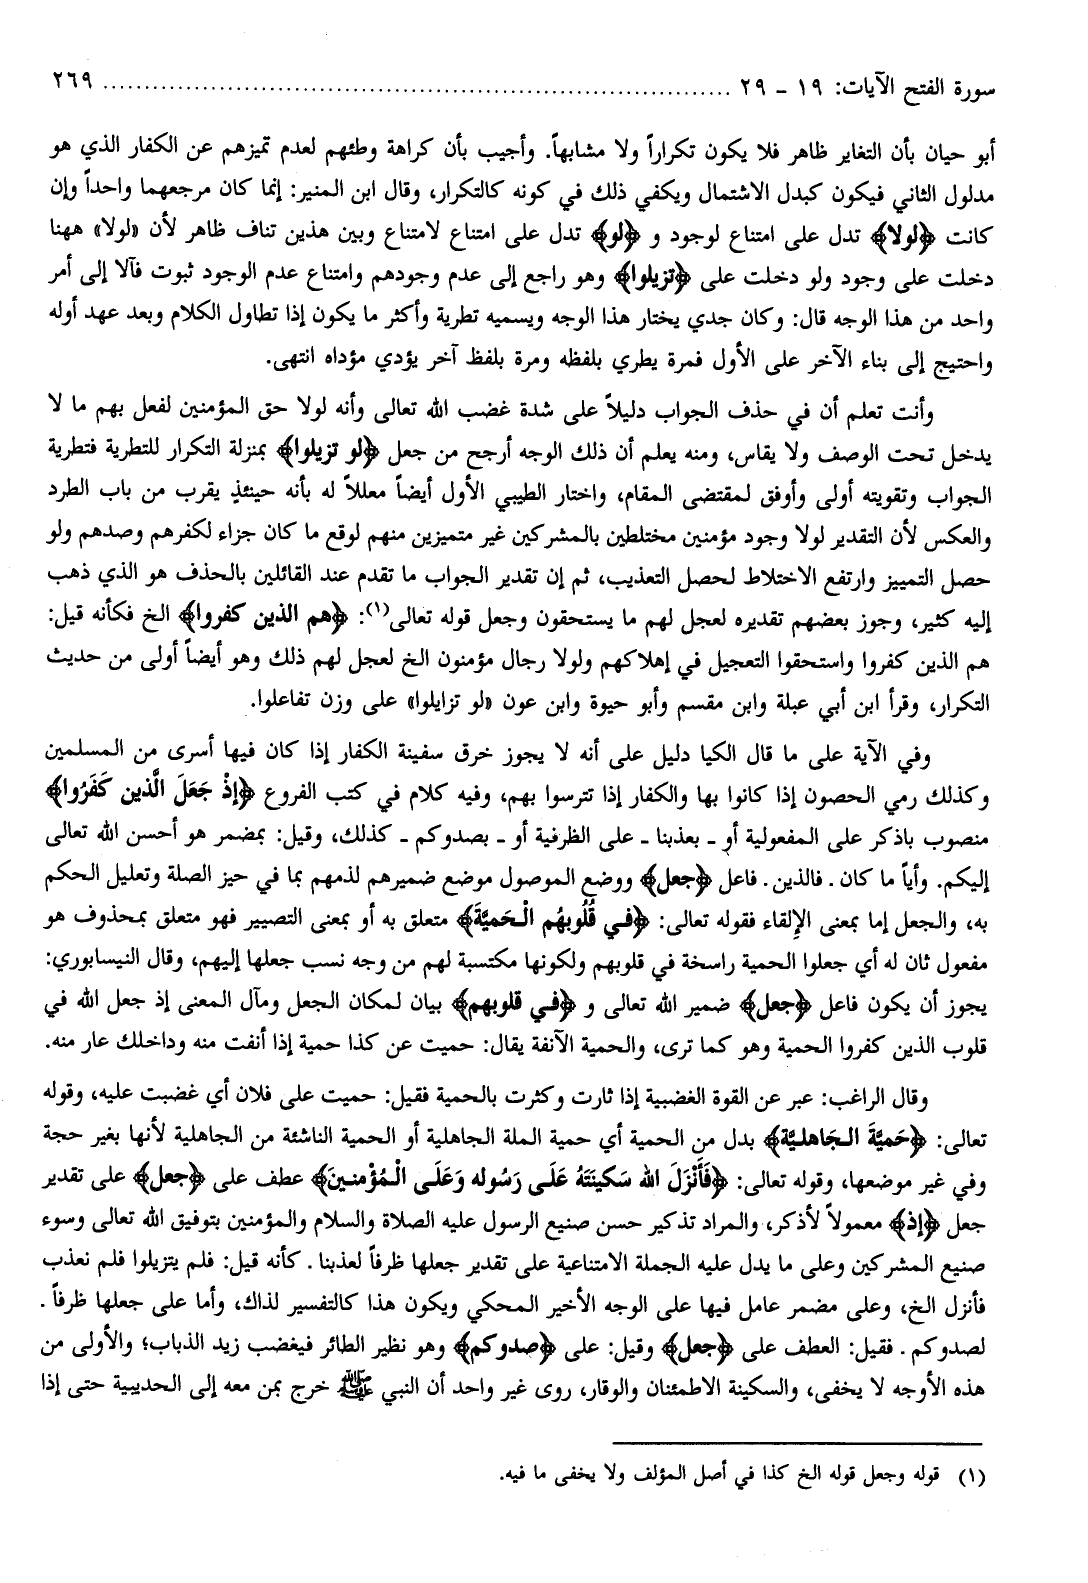 سورة الفتح الآيات: ١٩ - ٢٩ ................................................................ ٢٦٩
أبو حيان بأن التغاير ظاهر فلا يكون تكراراً ولا مشابهاً. وأجيب بأن كراهة وطئهم لعدم تميزهم عن الكفار الذي هو
مدلول الثاني فيكون كبدل الاشتمال ويكفي ذلك في كونه كالتكرار، وقال ابن المنير: إنما كان مرجعهما واحداً وإن
كانت ﴿لولا﴾ تدل على امتناع لوجود و ﴿لو﴾ تدل على امتناع لامتناع وبين هذين تناف ظاهر لأن «لولا» ههنا
دخلت على وجود ولو دخلت على ﴿تزيلوا﴾ وهو راجع إلى عدم وجودهم وامتناع عدم الوجود ثبوت فآلا إلى أمر
واحد من هذا الوجه قال: وكان جدي يختار هذا الوجه ويسميه تطرية وأكثر ما يكون إذا تطاول الكلام وبعد عهد أوله
واحتيج إلى بناء الآخر على الأول فمرة يطري بلفظه ومرة بلفظ آخر يؤدي مؤداه انتهى.
وأنت تعلم أن في حذف الجواب دليلاً على شدة غضب الله تعالى وأنه لولا حق المؤمنين لفعل بهم ما لا
يدخل تحت الوصف ولا يقاس، ومنه يعلم أن ذلك الوجه أرجح من جعل ﴿لو تزيلوا﴾ بمنزلة التكرار للتطرية فتطرية
الجواب وتقويته أولى وأوفق لمقتضى المقام، واختار الطيبي الأول أيضاً معللاً له بأنه حينئذٍ يقرب من باب الطرد
والعكس لأن التقدير لولا وجود مؤمنين مختلطين بالمشركين غير متميزين منهم لوقع ما كان جزاء لكفرهم وصدهم ولو
حصل التمييز وارتفع الاختلاط لحصل التعذيب، ثم إن تقدير الجواب ما تقدم عند القائلين بالحذف هو الذي ذهب
إليه كثير، وجوز بعضهم تقديره لعجل لهم ما يستحقون وجعل قوله تعالى(١): ﴿هم الذين كفروا﴾ الخ فكأنه قيل:
هم الذين كفروا واستحقوا التعجيل في إهلاكهم ولولا رجال مؤمنون الخ لعجل لهم ذلك وهو أيضاً أولى من حديث
التكرار، وقرأ ابن أبي عبلة وابن مقسم وأبو حيوة وابن عون «لو تزايلوا» على وزن تفاعلوا.
وفي الآية على ما قال الكيا دليل على أنه لا يجوز خرق سفينة الكفار إذا كان فيها أسرى من المسلمين
وكذلك رمي الحصون إذا كانوا بها والكفار إذا تترسوا بهم، وفيه كلام في كتب الفروع ﴿إذْ جَعَلَ الَّذين كَفَرُوا﴾
منصوب باذكر على المفعولية أو - بعذبنا - على الظرفية أو - بصدوكم - كذلك، وقيل: بمضمر هو أحسن الله تعالى
إليكم. وأياً ما كان . فالذين . فاعل ﴿جعل﴾ ووضع الموصول موضع ضميرهم لذمهم بما في حيز الصلة وتعليل الحكم
به، والجعل إما بمعنى الإلقاء فقوله تعالى: ﴿في قُلُوبهُم الْحَميَّةَ﴾ متعلق به أو بمعنى التصيير فهو متعلق بمحذوف هو
مفعول ثان له أي جعلوا الحمية راسخة في قلوبهم ولكونها مكتسبة لهم من وجه نسب جعلها إليهم، وقال النيسابوري:
يجوز أن يكون فاعل ﴿جعل﴾ ضمير الله تعالى و ﴿في قلوبهم﴾ بيان لمكان الجعل ومآل المعنى إذ جعل الله في
قلوب الذين كفروا الحمية وهو كما ترى، والحمية الأنفة يقال: حميت عن كذا حمية إذا أنفت منه وداخلك عار منه.
وقال الراغب: عبر عن القوة الغضبية إذا ثارت وكثرت بالحمية فقيل: حميت على فلان أي غضبت عليه، وقوله
تعالى: ﴿حَميَّةَ الجَاهليَّة﴾ بدل من الحمية أي حمية الملة الجاهلية أو الحمية الناشئة من الجاهلية لأنها بغير حجة
وفي غير موضعها، وقوله تعالى: ﴿فَأَنْزَلَ الله سَكينَتَهُ عَلَى رَسُوله وَعَلَى الْمُؤْمنينَ﴾ عطف على ﴿جعل﴾ على تقدير
جعل ﴿إذ﴾ معمولاً لأذكر، والمراد تذكير حسن صنيع الرسول عليه الصلاة والسلام والمؤمنين بتوفيق الله تعالى وسوء
صنيع المشركين وعلى ما يدل عليه الجملة الامتناعية على تقدير جعلها ظرفاً لعذبنا . كأنه قيل: فلم يتزيلوا فلم نعذب
فأنزل الخ، وعلى مضمر عامل فيها على الوجه الأخير المحكي ويكون هذا كالتفسير لذاك، وأما على جعلها ظرفاً .
لصدوكم . فقيل: العطف على ﴿جعل﴾ وقيل: على ﴿صدوكم﴾ وهو نظير الطائر فيغضب زيد الذباب؛ والأولى من
هذه الأوجه لا يخفى، والسكينة الاطمئنان والوقار، روى غير واحد أن النبي ﷺ خرج بمن معه إلى الحديبية حتى إذا
(١) قوله وجعل قوله الخ كذا في أصل المؤلف ولا يخفى ما فيه.